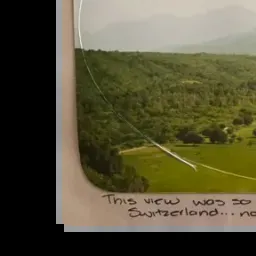 This view was so
Switzerland... no